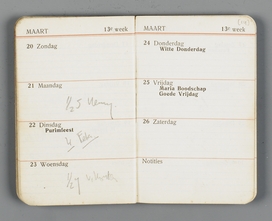 MAART 13e week
20 Zondag
21 Maandag
22 Dinsdag
Purimfeest
23 Woensdag
MAART 13e week
24 Donderdag
Witte Donderdag
25 Vrijdag
Maria Boodschap
Goede Vrijdag
26 Zaterdag
Notities